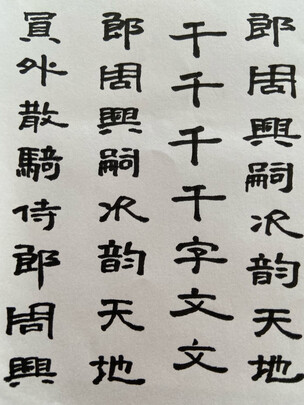 郎周興嗣次韵天地
千千千千字文文
郎周興嗣次韵天地
員外散騎侍郎周興